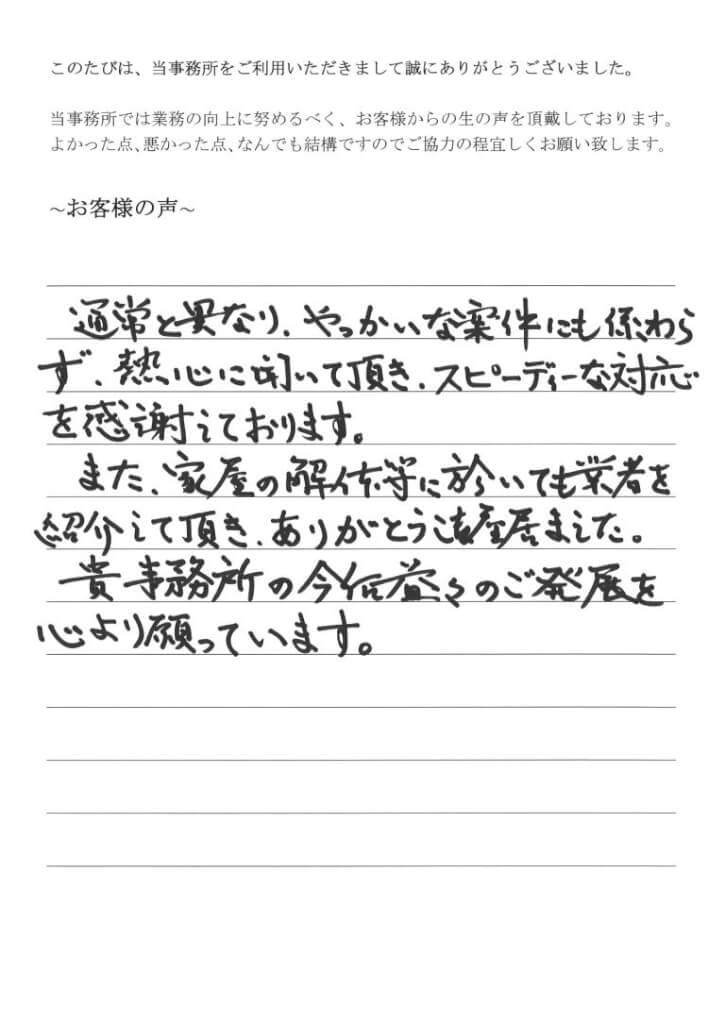 このたびは、当事務所をご利用いただきまして誠にありがとうございました。
当事務所では業務の向上に努めるべく、お客様からの生の声を頂戴しております。
よかった点、悪かった点、なんでも結構ですのでご協力の程宜しくお願い致します。
～お客様の声～
通常と異なり、やっかいな案件にも係わら
ず、熱心に聞いて頂き、スピーディーな対応
を感謝しております。
また、家屋の解体等に於いても業者を
紹介して頂き、ありがとう御座居ました。
貴事務所の今後益々のご発展を
心より願っています。